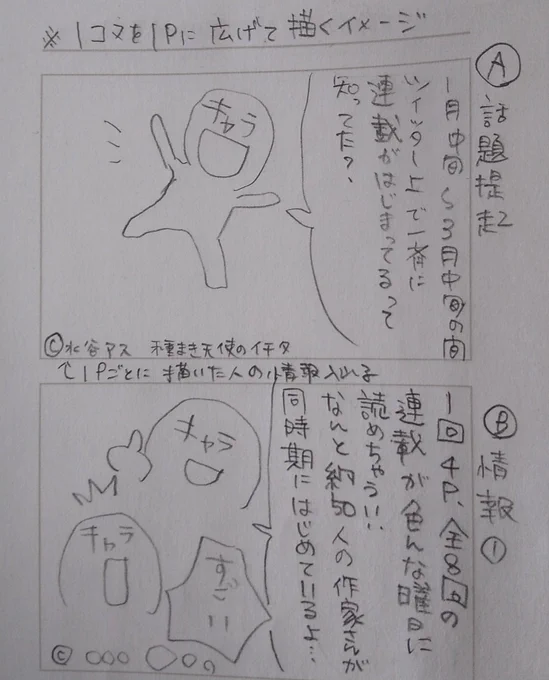 ※1コマを1Pに広げて描くイメージ
Ⓐ話題提起
1月中旬〜3月中旬の間
ツイッター上で一斉に
連載がはじまってるって
知ってた?
キャラ
©水谷アス 種まき天使のイチタ
↑1Pごとに描いた人の情報入れる
Ⓑ情報①
1回4P、全8回の
連載が色んな曜日に
読めちゃう!!
なんと約50人の作家さんが
同時期にはじめているよ…
キャラ
キャラ
すごい!!
© ○○○ ○○○